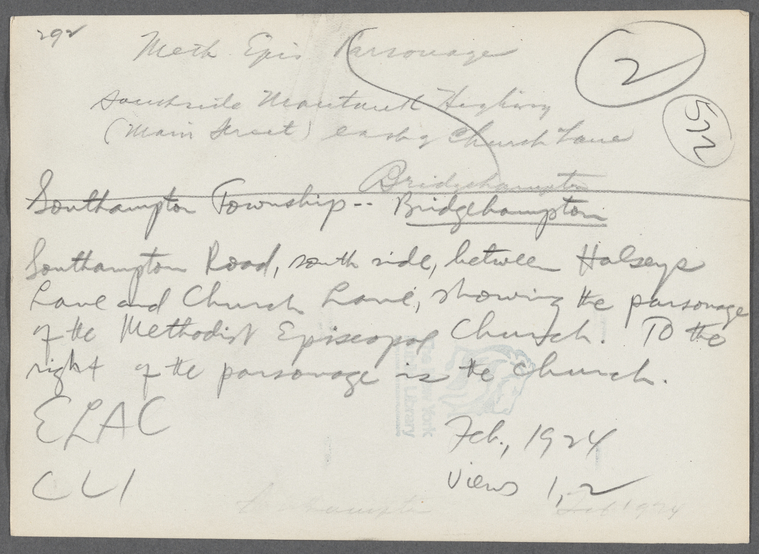 292
Meth Epis Parsonage
2
southside Montauk Highway
572
(Main Street) east of Church Lane
Bridgehampton
Southampton Township -- Bridgehampton
Southampton Road, south side, between Halseys
Lane and Church Lane, showing the parsonage
of the Methodist Episcopal Church. To the
right of the parsonage is the Church.
ELAC
Feb., 1924
CLI
Views 1, 2
Feb 1924